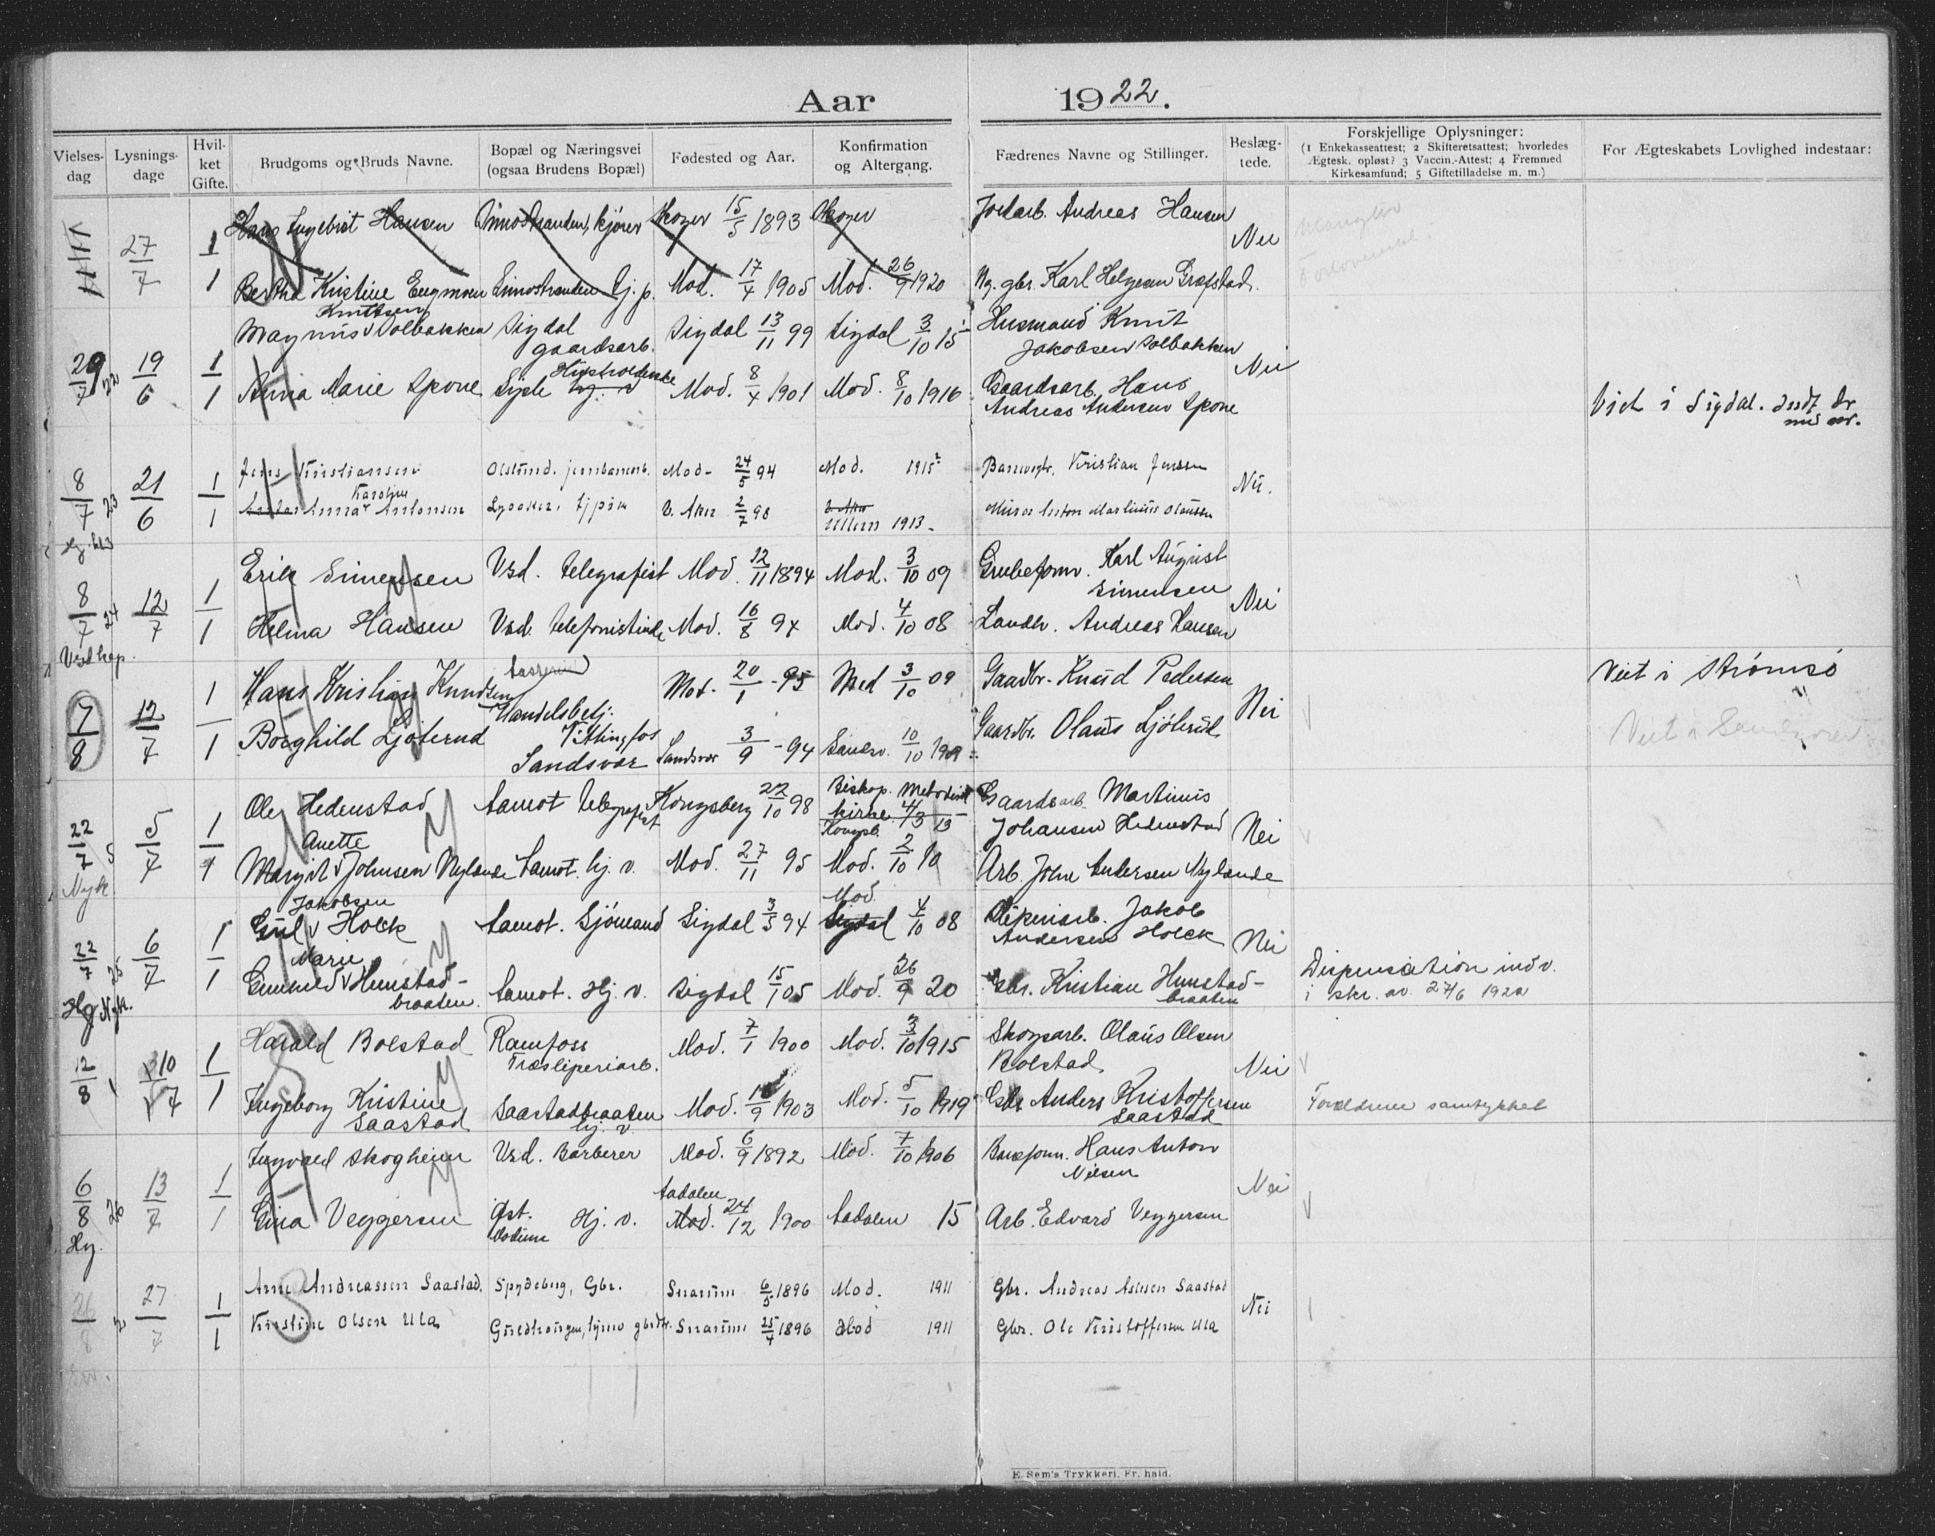 Aar 1922.
Vielses-dag
Lysnings-dage
Hvil-ket Gifte.
Brudgoms og Bruds Navne.
Bopæl og Næringsvei (ogsaa Brudens Bopæl)
Fødested og Aar.
Konfirmation og Altergang.
Fædrenes Navne og Stillinger.
Beslæg-tede.
Forskjellige Oplysninger:
(1 Enkekasseattest; 2 Skifteretsattest; hvorledes
Ægtesk. opløst? 3 Vaccin.-Attest; 4 Fremmed
Kirkesamfund; 5 Giftetilladelse m. m.)
For Ægteskabets Lovlighed indestaar:
27/7 1 Hans Ingebret Hansen kjører Skoger 15/5 1893 Skoger Jordarb. Andreas Hansen Nei
1 Bertha Kristine Engmoen hj. p. Mod. 17/4 1905 Mod. 26/9 1920 gbr. Karl Helgesen Græfstad.
Knutsen
29/7 22 19/6 1 Magnus v Solbakken Sigdal gaardsarb. Sigdal 13/11 99 Sigdal 3/10 15 Husmand Knut
Jakobsen Solbakken Nei
1 Anna Marie Spone hj. v Mod. 8/4 1901 Mod. 8/10 1916 Gaardsarb. Hans
Andreas Andersen Spone
Viet i Sigdal.
8/7 23 21/6 1 Jens Kristiansen jernbanearb. Mod. 24/5 94 Mod. 1915 Kristian Jenssen Nei.
Karoline
1 Anna v Antonsen Lysaker V. Aker 2/7 98 V. Aker Ullern 1913 Anton Martinius Olaussen
8/7 24 12/7 1 Erik Simensen Vsd. telegrafist Mod. 12/11 1894 Mod. 3/10 09 Grubeform. Karl August
Simensen Nei
1 Helma Hansen Vsd. telefonistinde Mod. 16/8 94 Mod. 4/10 08 Landh. Andreas Hansen
7/8 12/7 1 Hans Kristian Knudsen Handelsbetj. Mod. 20/1 - 95 Mod 3/10 09 Gaardbr. Knud Pedersen Nei
Viet i Strømsø
1 Borghild Ljøterud Vittingfos
Sandsvær Sandsvær 3/9 - 94 Sandsv. 10/10 1909 Gaardbr. Olaus Ljøterud
22/7 5 5/7 1 Ole Hedenstad Aamot telegrafist Kongsberg 22/10 98 Biskop. Metodist
kirke 4/3 13
Kongsb. Gaardsarb. Martinus
Johansen Hedenstad Nei
Anette
1 Margit v Johnsen Nylænde Aamot. hj. v. Mod. 27/11 95 Mod. 2/10 10 Arb. John Andersen Nylænde
Nyk.
Jakobsen
22/7 25 6/7 1 v Holck Aamot. Sjømand Sigdal 3/5 94 Mod. Sigdal 4/10 08 Jakob
Andersen Holck Nei
Marie
1 Gunhild v Hunstad-
braaten Aamot. Hj. v. Sigdal 15/1 05 Mod. 26/9 20 Gbr. Kristian Hunstad-
braaten
Dispensation indv.
i skr. av 27/6 1922
12/8 1 Harald Bolstad Ramfoss
Træsliperiarb. Mod. 7/1 1900 Mod. 3/10 1915 Skogsarb. Olaus Olsen
Bolstad Nei
1 Ingeborg Kristine
Saastad Saastadbraaten
hj. v. Mod. 9 1903 Mod. 5/10 1919 Gbr Anders Kristoffersen
Saastad
Forældrene samtykket
6/8 26 13/7 1 Ingvald Skogheim Vsd. Barberer Mod. 6/9 1892 Mod. 7/10 1906 Hans Anton
Nielsen Nei
Aadalen
1 Gina Veggersen Øst.
Modum Hj. v. Mod. 24/12 1900 Aadalen 15 Arb. Edvard Veggersen
Hg.
26/8 2 27/7 1 Arne Andreassen Saastad, Spydeberg, Gbr. Snarum 6/5 1896 Mod. 1911 Gbr. Andreas Saastad Nei
1 Kirstine Olsen Ula Snarum 25/4 1896 Mod 1911 Gbr. Ole Kristoffersen Ula
E. Sem's Trykkeri, Fr.hald.